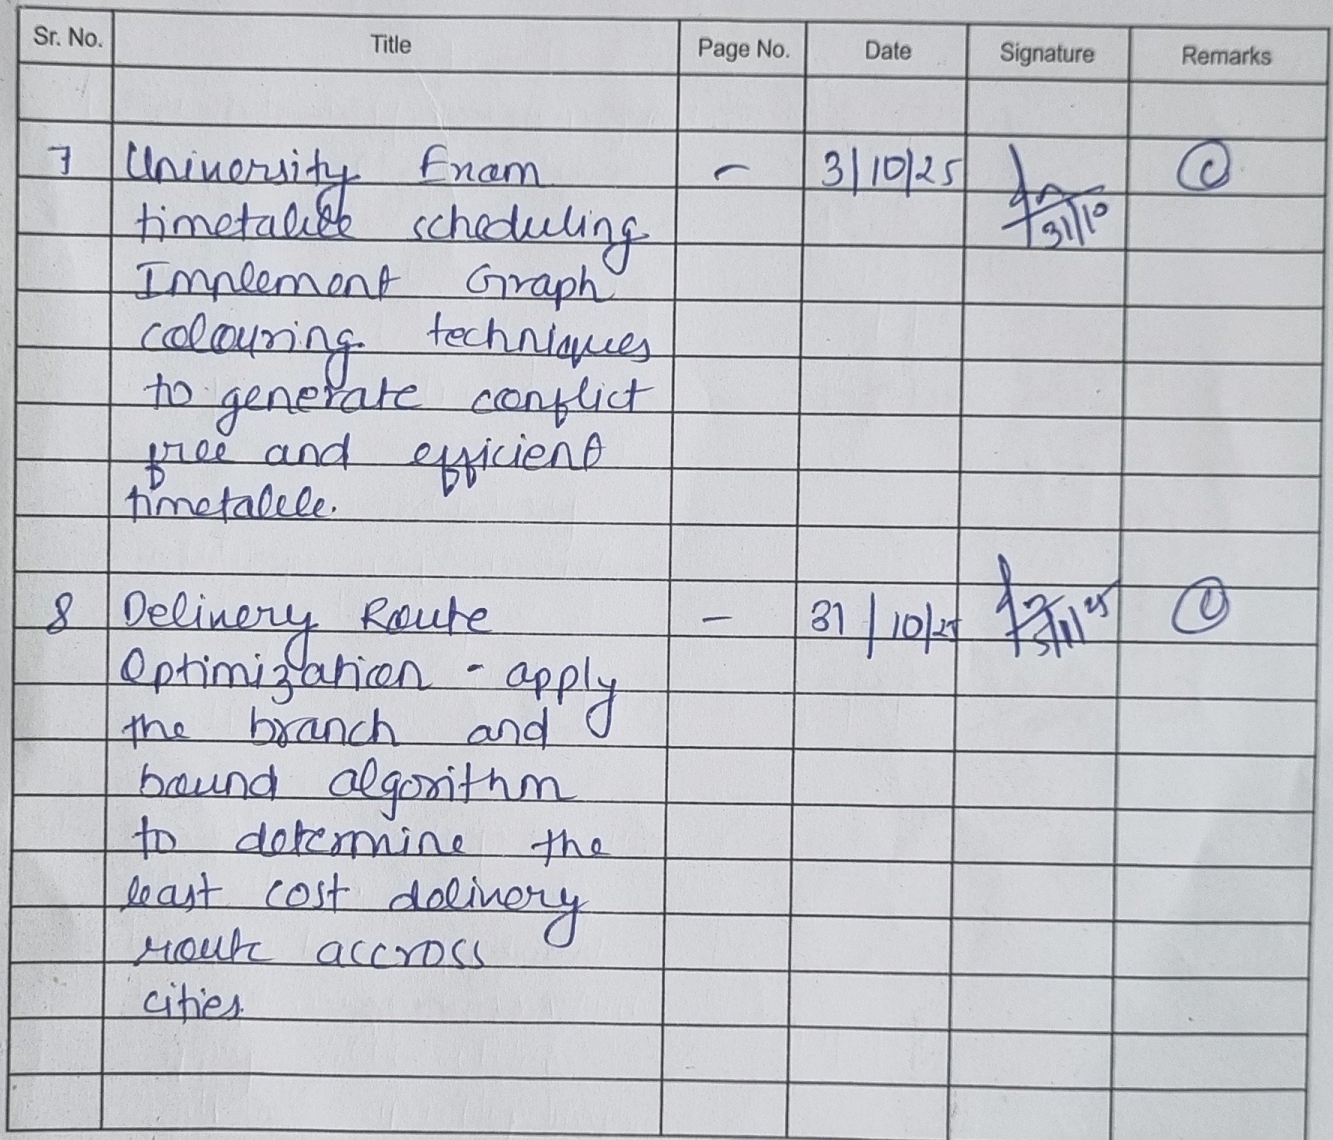 Sr. No. Title Page No. Date Signature Remarks
7 University Exam - 3/10/25 C
31/10
timetable scheduling
Implement Graph
colouring techniques
to generate conflict
free and efficient
timetable.
8 Delivery Route - 31/10/25
Optimization - apply
the branch and
bound algorithm
to determine the
least cost delivery
route accross
cities.